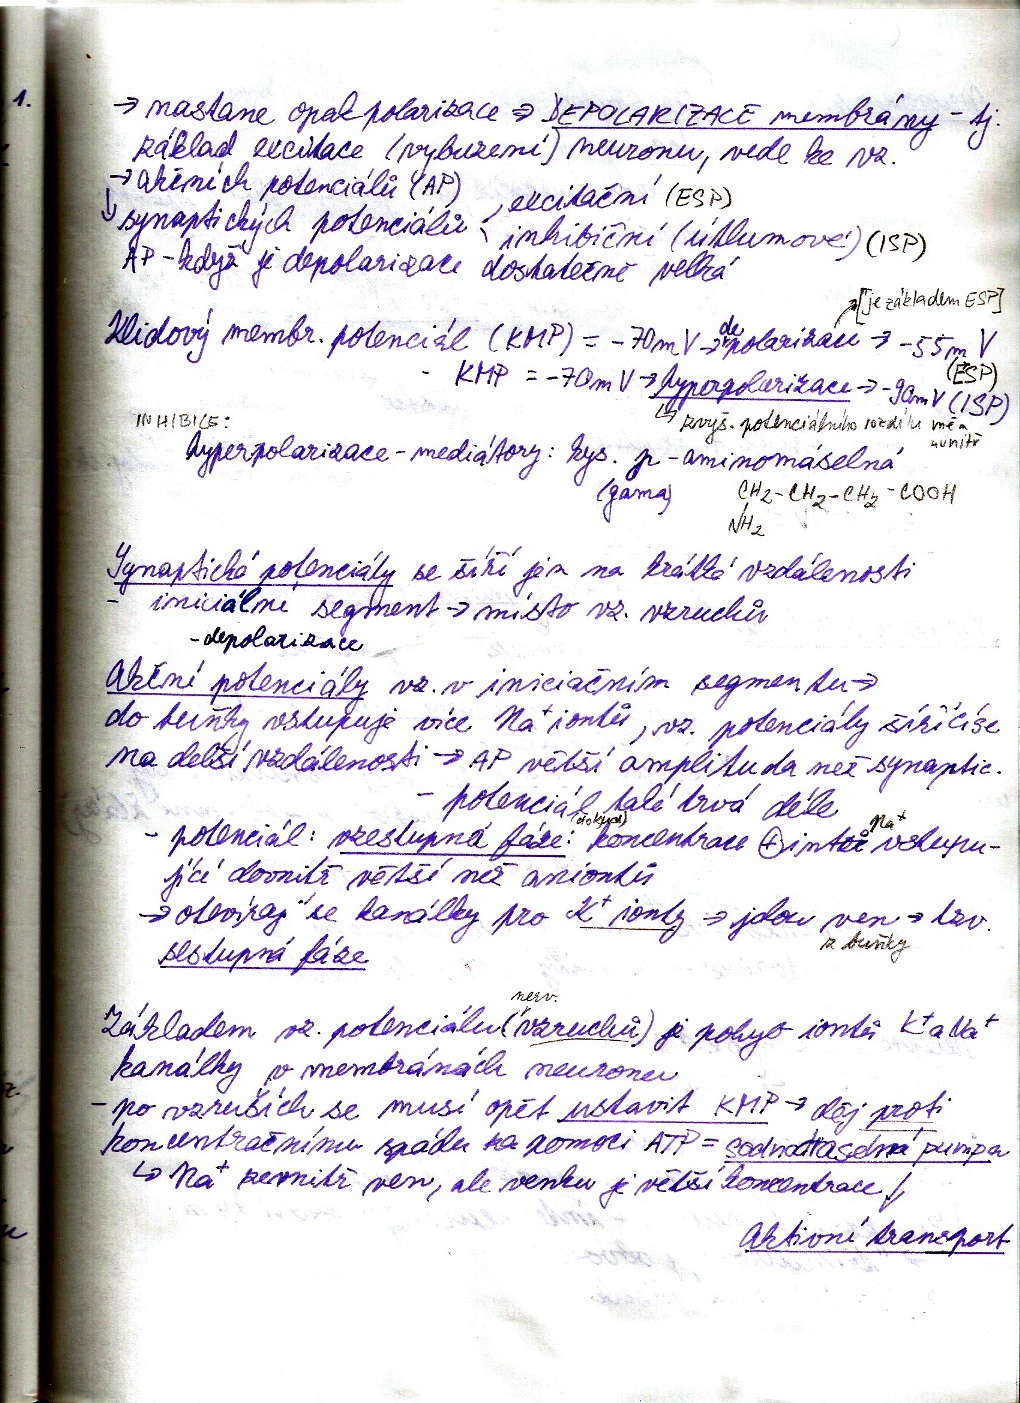 1.
→ nastane opak polarizace ⇒ DEPOLARIZACE membrány - tj.
základ excitace (vybuzení) neuronu, vede ke vz.
→ akčních potenciálů (AP)
↓ synaptických potenciálů
excitační (ESP)
inhibiční (útlumové) (ISP)
AP - když je depolarizace dostatečně velká
[je základem ESP]
Klidový membr. potenciál (KMP) = -70mV → depolarizace → -55mV
(ESP)
- KMP = -70mV → hyperpolarizace → -90mV (ISP)
↳ zvýš. potenciálního rozdílu vně a uvnitř
INHIBICE:
hyperpolarizace - mediátory: kys. γ-aminomáselná
(gama)
CH2-CH2-CH2-COOH
NH2
Synaptické potenciály se šíří jen na krátké vzdálenosti
- iniciální segment → místo vz. vzruchů
- depolarizace
Akční potenciály vz. v iniciačním segmentu →
do buňky vstupuje více Na+ iontů, vz. potenciály šířící se
na delší vzdálenosti → AP větší amplituda než synaptic.
- potenciál, také trvá déle
- potenciál: vzestupná fáze: (dokud) koncentrace ⊕ intů Na+ vstupu-
jící dovnitř větší než aniontů
→ otevírají se kanálky pro K+ ionty → jdou ven → tzv.
z buňky
sestupná fáze
Základem vz. potenciálu (nerv. vzruchů) je pohyb iontů K+ a Na+
kanálky v membránách neuronu
- po vzruších se musí opět ustavit KMP → děj proti
koncentračnímu spádu za pomoci ATP = sodnodraselná pumpa
↳ Na+ zevnitř ven, ale venku je větší koncentrace ↓
Aktivní transport